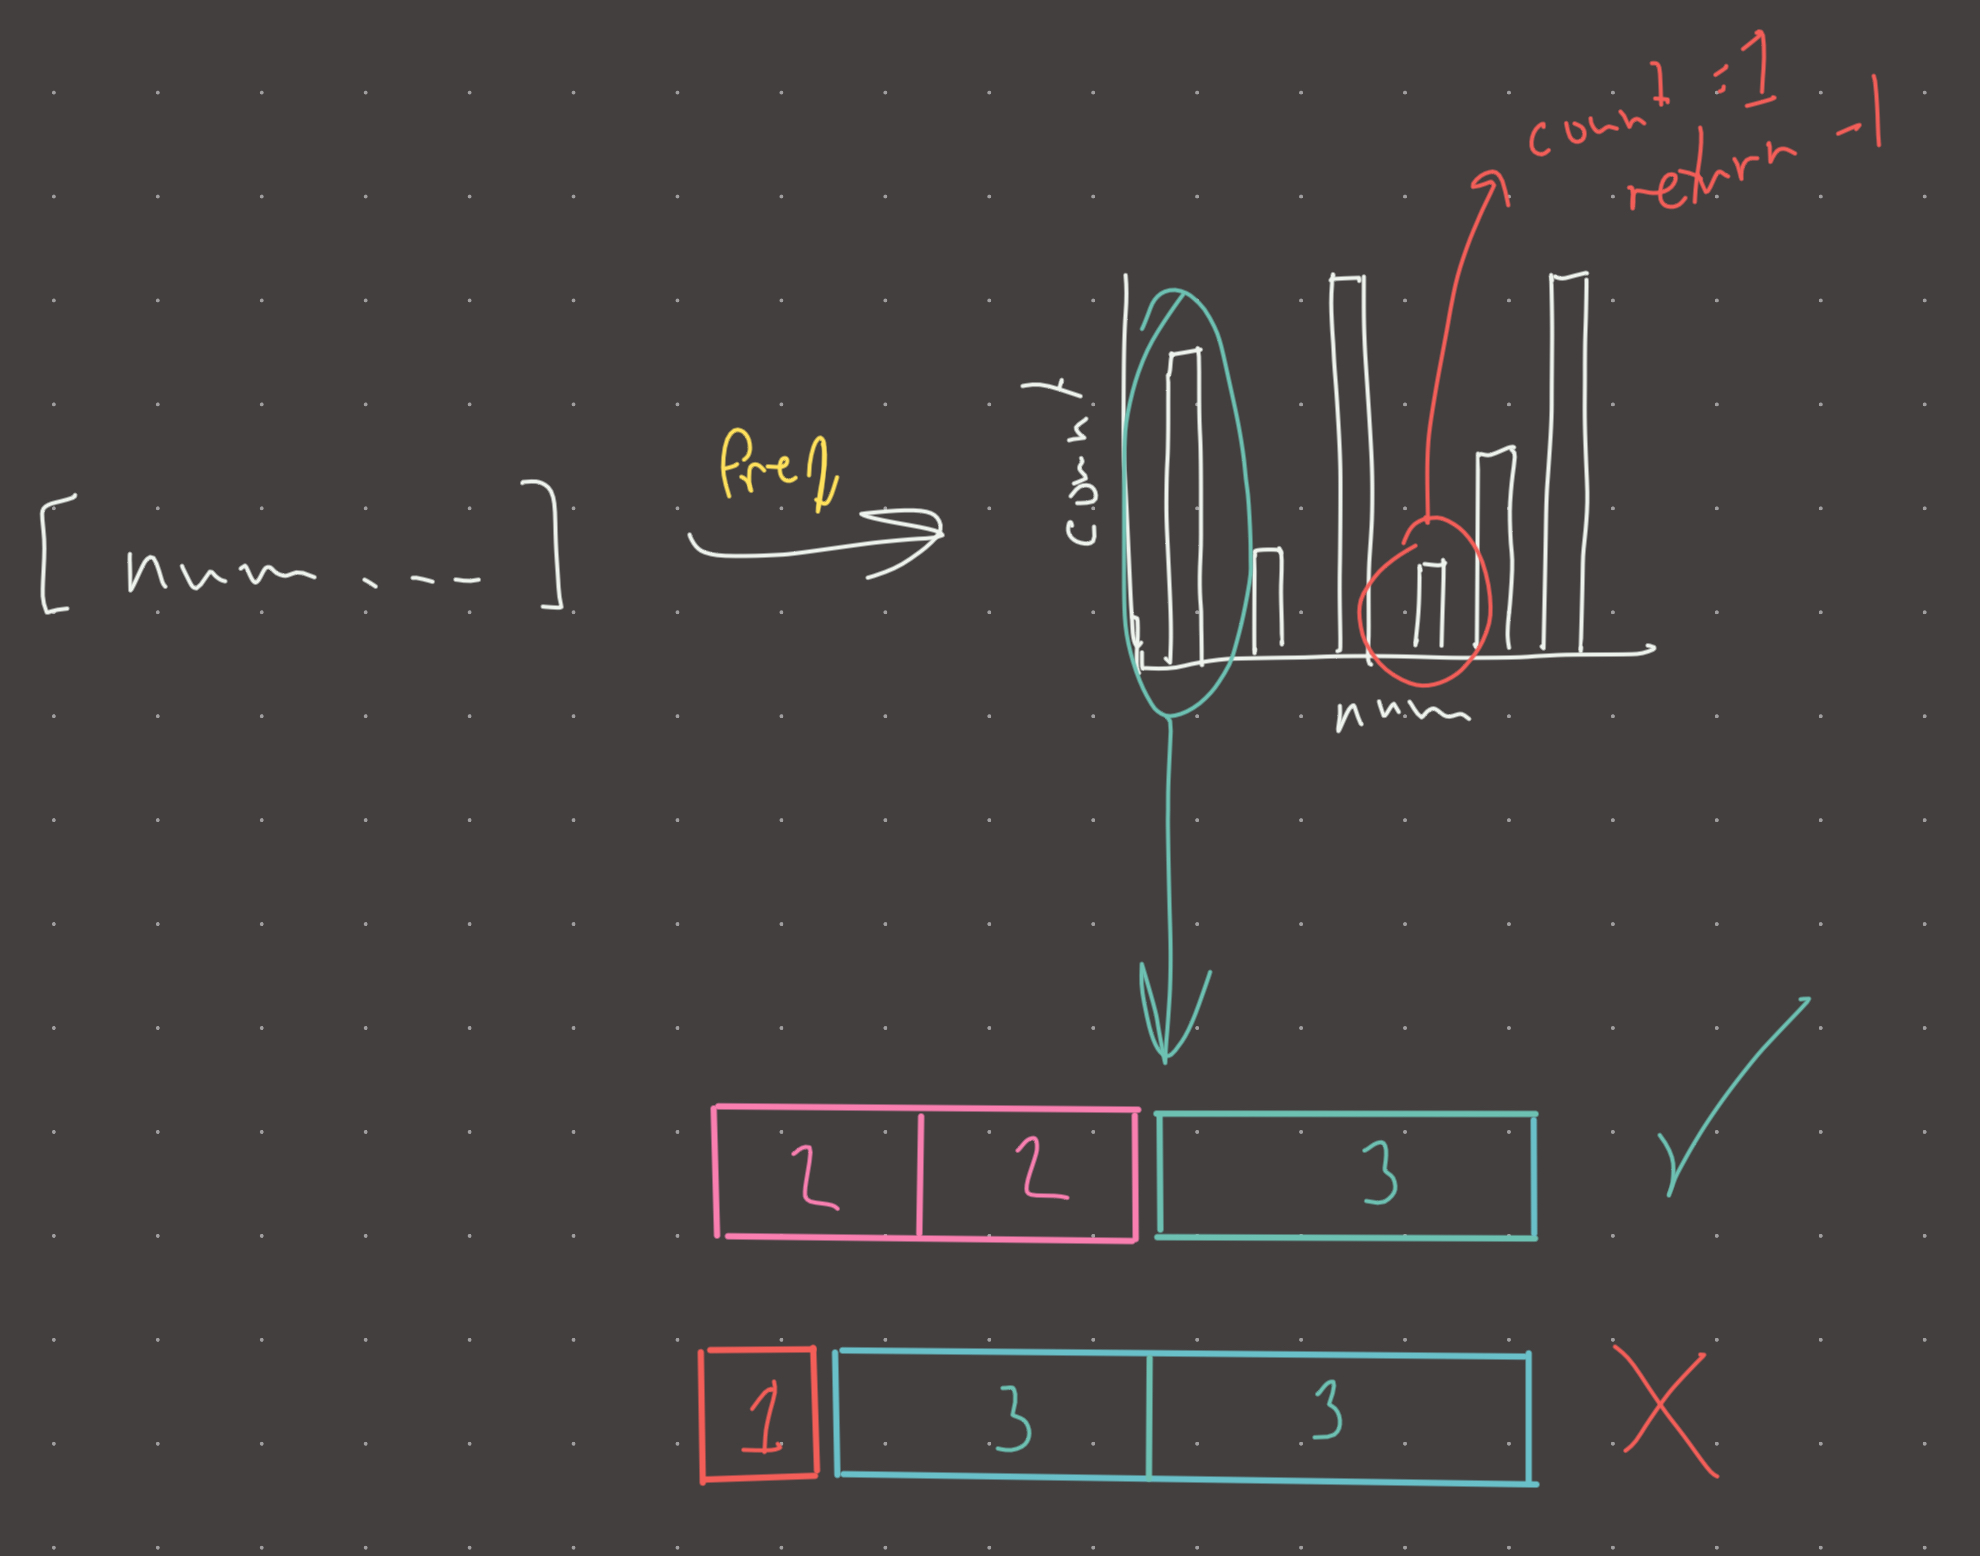 count = 1
return -1
freq
count
[ num . - - - ]
num
2 2 3
1 3 3